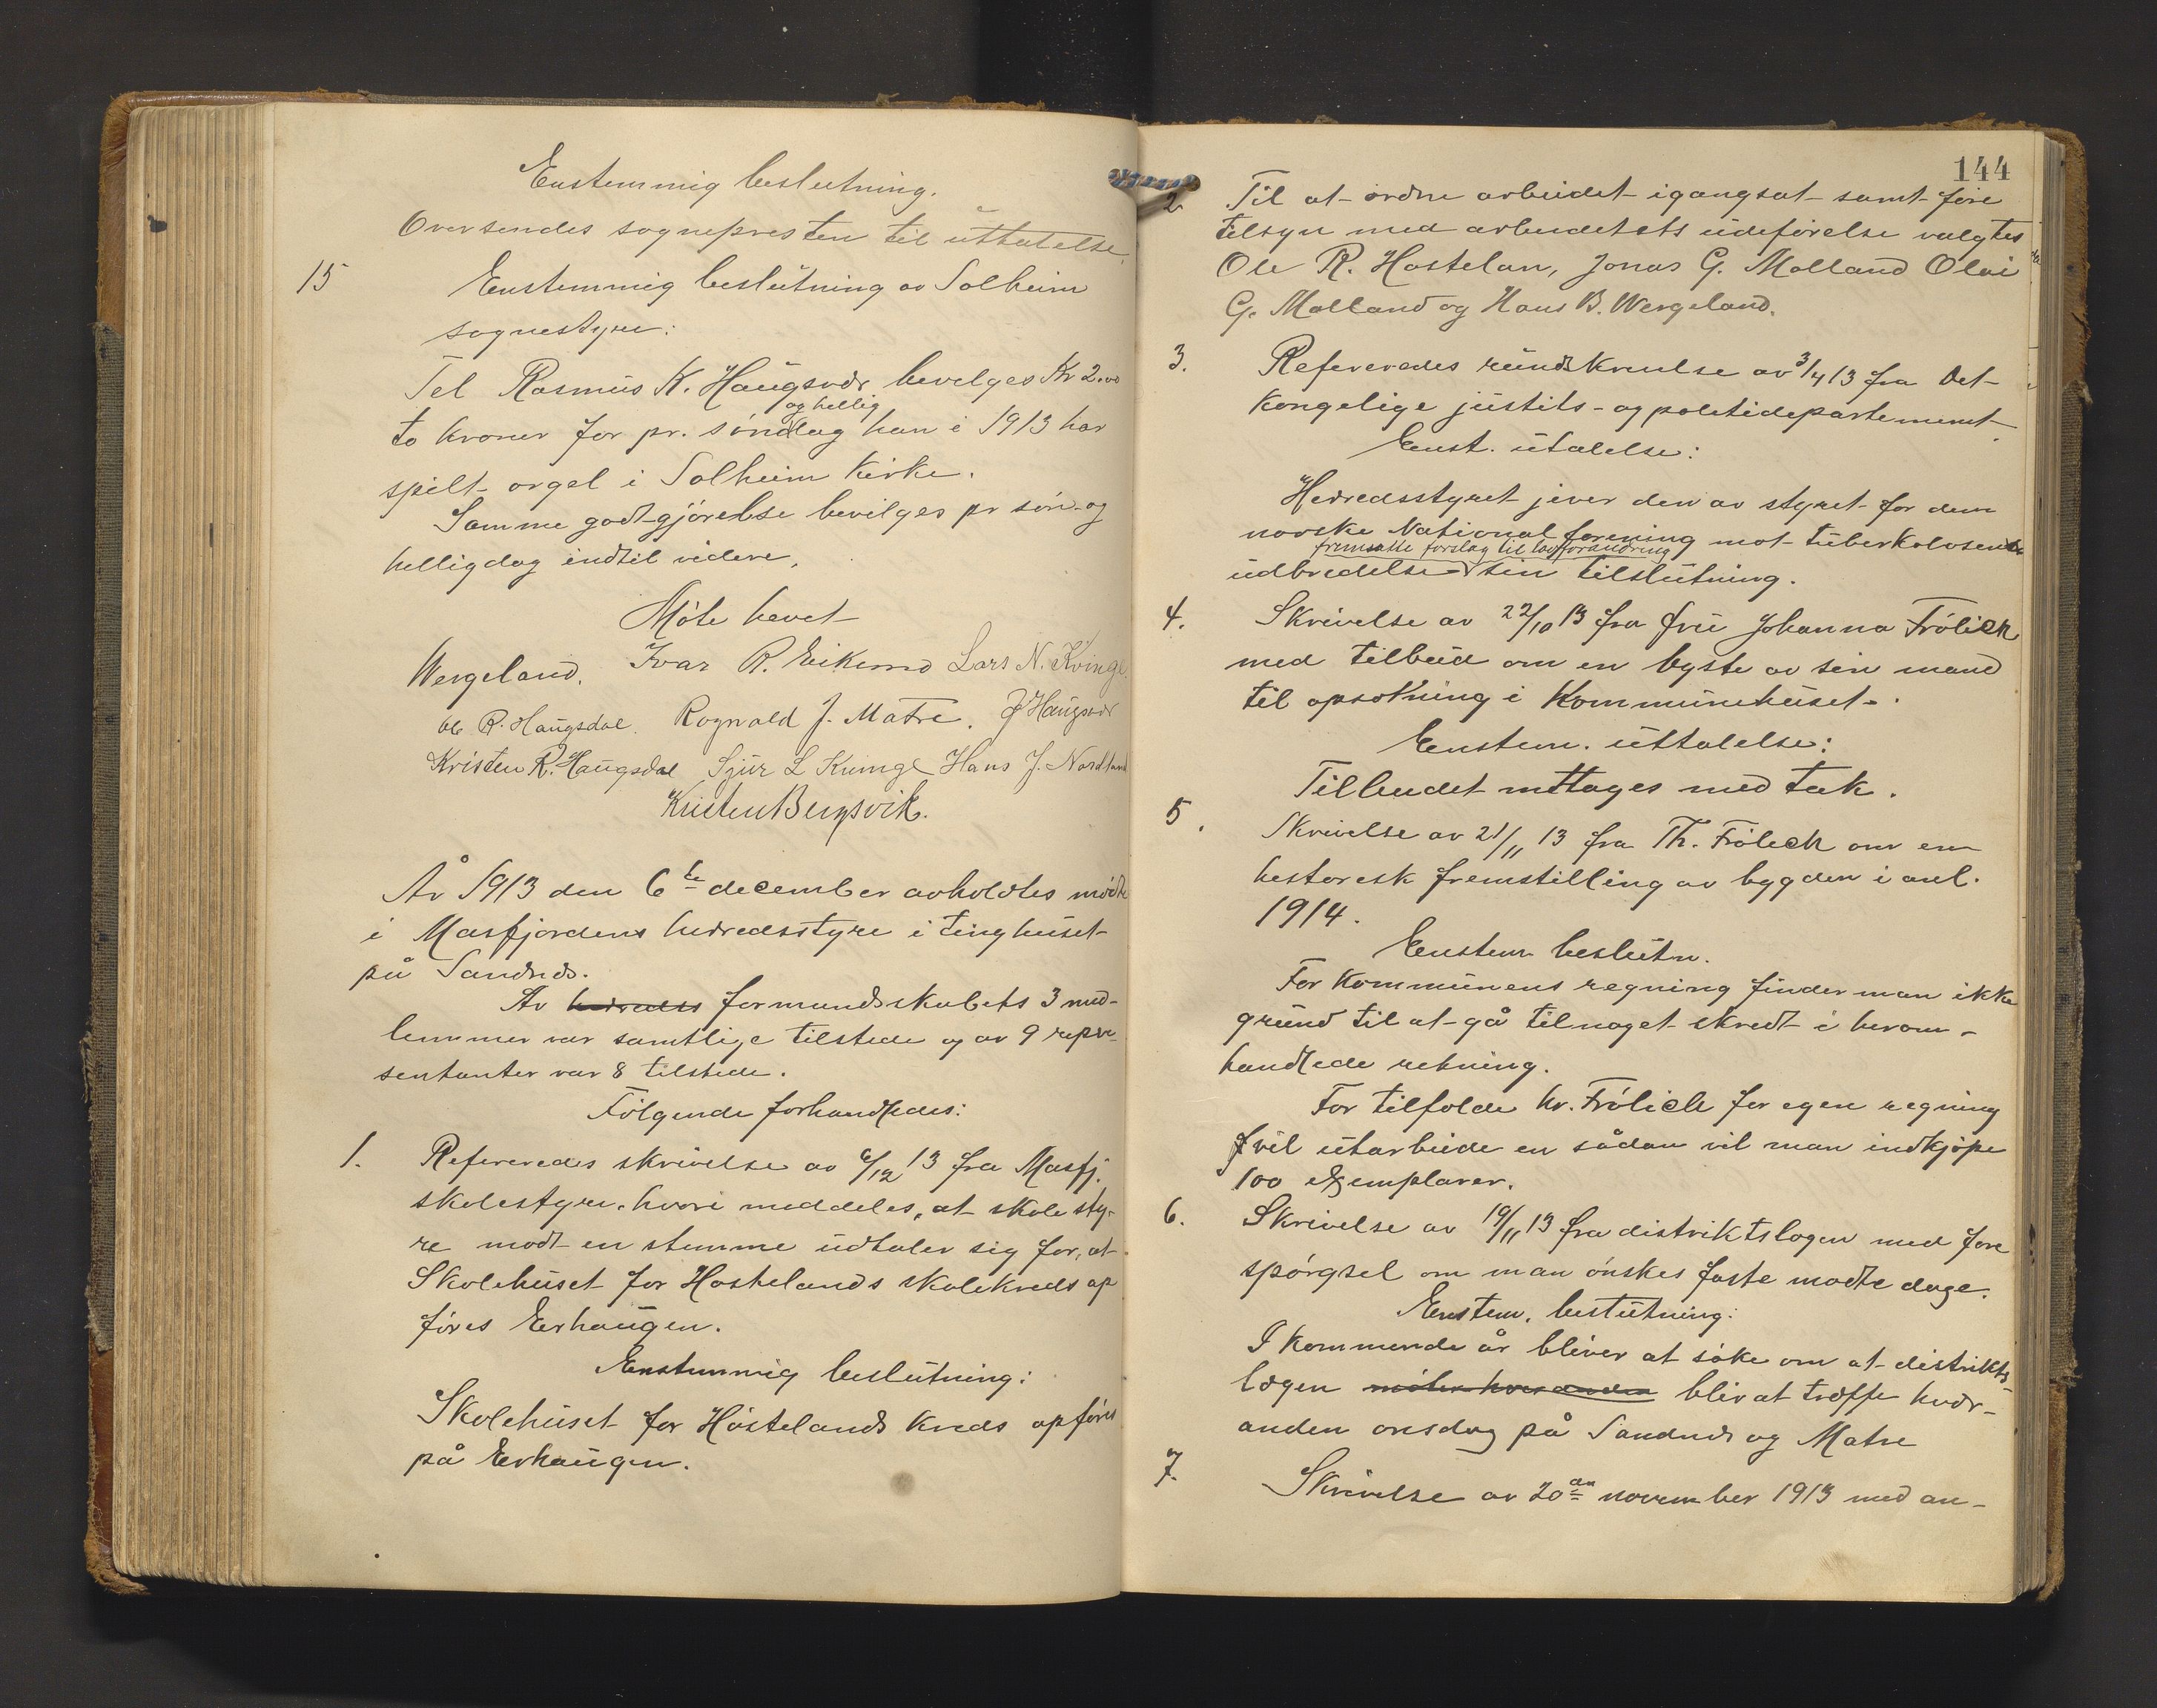 Enstemmig beslutning.
Oversendes sognepresten til uttalelse.
15 Enstemmig beslutning av Solheim
sognestyre:
Tel Rasmus K. Haugsvær bevelges Kr 2.00
to kroner for pr. søndag og hellig han i 1913 har
spilt orgel i Solheim Kirke.
Samme godtgjørelse bevilges pr søn og
helligdag indtil videre.
Møte hevet
Wergeland. Ivar R. Eikemo Lars N. Kvinge
Ole R. Haugsdal. Rognald J. Matre. J Haugsvær
Kristen R. Haugsdal Sjur L Kvinge Hans J. Nordland
Kristen Bergsvik.
År 1913 den 6te december avholdtes mødte
i Masfjordens heredsstyre i tinghuset
på Sandnæs.
Av heredss formandsskabets 3 med-
lemmer var samtlige tilstede og av 9 repre-
sentanter var 8 tilstede.
Følgende forhandledes:
1. Refereredes skrivelse av 6/12 13 fra Masfj.
skolestyre, hvori meddeles, at skolesty-
re modt en stemme udtaler sig for, at
Skolehuset for Hostelands skolekreds op
føres Erhaugen.
Enstemmig beslutning:
Skolehuset for Høstelands kreds opføres
på Erhaugen.
144
2 Til at ordne arbeidet igangsat samt føre
tilsyn med arbeidetets udeførelse valgtes
Ole R. Hostelan, Jonas G. Molland Olai
G. Molland og Hans B. Wergeland.
3. Refereredes rundskrivelse av 3/4 13 fra Det
Kongelige justits- og politidepartement
Enst. utalelse:
Heredsstyret jever den av styret for den
norske National forening mot tuberkolosens
udbredelse fremsatte forslag til lovforandring sin tilslutning.
4. Skrivelse av 22/10 13 fra fru Johanna Frølich
med tilbud om en byste av sin mand
til opsætning i Kommunehuset.
Enstem. uttalelse:
Tilbudet mttages med tak.
5. Skrivelse av 21/11 13 fra Th. Frølich om en
hestoresk fremstilling av bygden i anl.
1914.
Enstem beslutn.
For Kommunens regning finder man ikke
grund til at gå til noget skredt i herom-
handlede retning.
For tilfølde hr. Frølich for egen regning
vil utarbeide en sådan vil man indkjøpe
100 eksemplarer.
6. Skrivelse av 19/11 13 fra distriktslægen med fore
spørgsel om man ønskes faste mødte dage.
Enstem. beslutning:
I kommende år bliver at søke om at distrikts-
lægen møter hver anden blir at træffe hvær-
anden onsdag på Sandnæs og Matre
7. Skrivelse av 20de november 1913 med an-